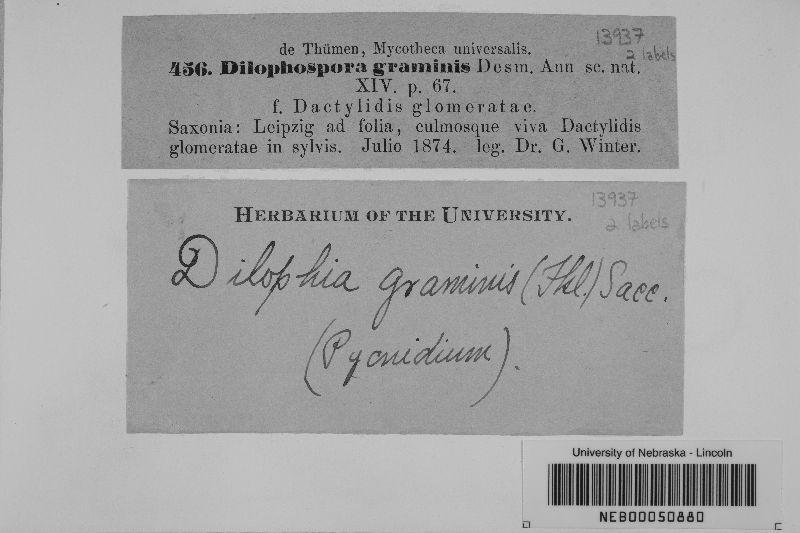 13937
2 labels
de Thümen, Mycotheca universalis.
456. Dilophospora graminis Desm. Ann sc. nat.
XIV. p. 67.
f. Dactylidis glomeratae.
Saxonia: Leipzig ad folia, culmosque viva Dactylidis
glomeratae in sylvis. Julio 1874. leg. Dr. G. Winter.
13937
2 labels
HERBARIUM OF THE UNIVERSITY.
Dilophia graminis (Fkl.) Sacc.
(Pycnidium).
University of Nebraska - Lincoln
NEB00050880